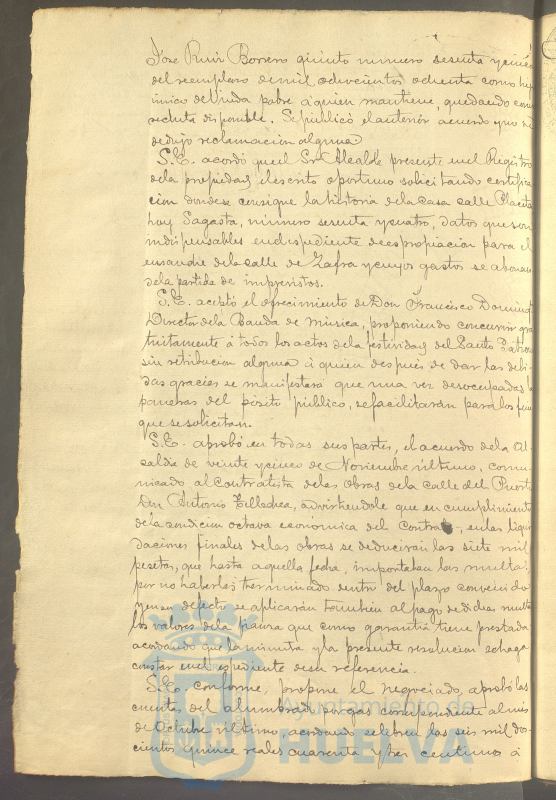 José Ruiz Borrero quinto número sesenta y cinco
del reemplazo de mil ochocientos ochenta como hijo
único de viuda pobre á quien mantiene, quedando como
recluta disponible. Se publicó el anterior acuerdo y no se
dedujo reclamación alguna
S. E. acordó que el Sr. Alcalde presente en el Registro
de la propiedad, el escrito oportuno solicitando certifica
cion donde se consigne la historia de la casa calle Placeta
hoy Sagasta, número sesenta y cuatro, datos que son
indispensables en el expediente de expropiacion para el
ensanche de la calle de Zafra y cuyos gastos se abonarán
de la partida de imprevistos.
S. E. aceptó el ofrecimiento de Don Francisco Domingo
Director de la Banda de música, proponiendo concurrir gra
tuitamente á todos los actos de la festividad del Santo Patrono
sin retribucion alguna á quien después de dar las debi
das gracias se manifestará que una vez desocupadas las
paneras del pósito público, se facilitarán para los fines
que se solicitan.
S. E. aprobó en todas sus partes, el acuerdo de la Al
caldía de veinte y cinco de Noviembre último, comu
nicado al contratista de las obras de la calle del Puerto
Don Antonio Tellechea, advirtiéndole que en cumplimiento
de la condicion octava económica del contrato, en las liqui
daciones finales de las obras se deducirán las siete mil
pesetas, que hasta aquella fecha, importaban las multas
por no haberlas terminado dentro del plazo convenido
y en su defecto se aplicarán tambien al pago de dichas multas
los valores de la fianza que como garantía tiene prestada
acordando que la minuta y la presente resolucion se haga
constar en el expediente de su referencia.
S. E. conforme, propone el negociado, aprobó las
cuentas del alumbrado por gas correspondiente al mes
de Octubre último, acordando se libren las seis mil dos-
cientos quince reales cuarenta y tres centimos á
Ayuntamiento de
HUELVA